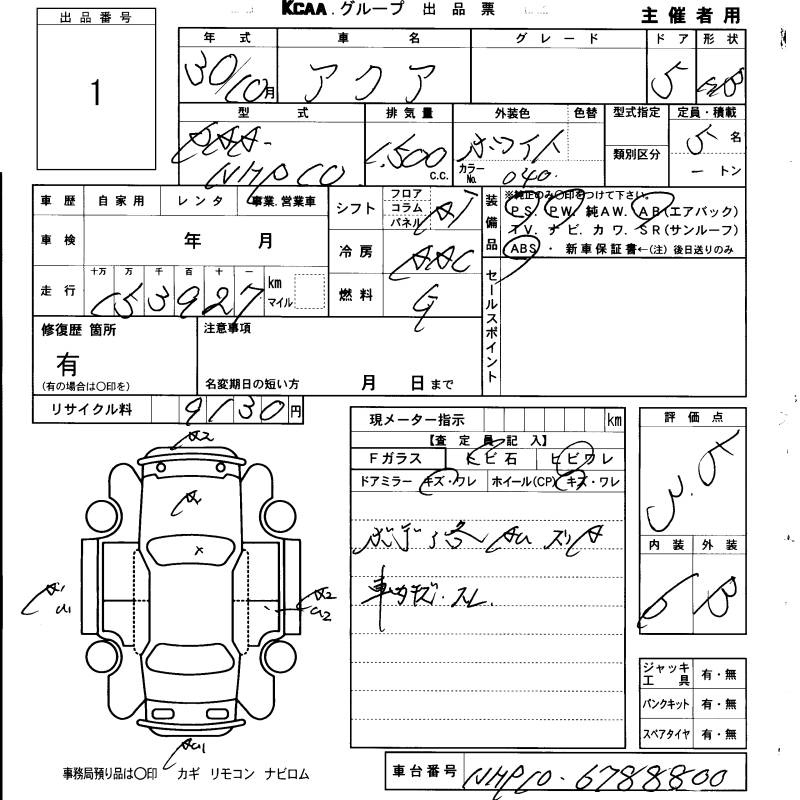 KCAA.グループ 出品票
主催者用
出品番号
1
年式 車名 グレード ドア 形状
30/10月 アクア 5 HB
型式 排気量 外装色 色替 型式指定 定員・積載
DAA-
NHP10
1,500 c.c.
ホワイト
カラーNo. 040
類別区分
5名
ートン
車歴 自家用 レンタ 事業.営業車
シフト フロア コラム パネル AT
装備品
※純正のみ○印をつけて下さい。
PS. PW. 純AW. AB(エアバック)
TV. ナビ. カワ. SR(サンルーフ)
ABS・新車保証書←(注)後日送りのみ
車検 年 月
冷房 AAC
走行 十万 万 千 百 十 一
153927 km マイル
燃料 G
セールスポイント
修復歴 箇所
有
(有の場合は○印を)
注意事項
名変期日の短い方 月 日まで
リサイクル料 9130円
現メーター指示 km
【査定員記入】
Fガラス トビ石 ヒビワレ
ドアミラー キズ・ワレ ホイール(CP) キズ・ワレ
評価点
3.5
内装 外装
B B
A2
A1
X
A1
U1
A2
U2
AU1
ボデー各 AU スリA
車内キズ・スレ
ジャッキ工具 有・無
パンクキット 有・無
スペアタイヤ 有・無
事務局預り品は○印 カギ リモコン ナビロム
車台番号 NHP10-6788800